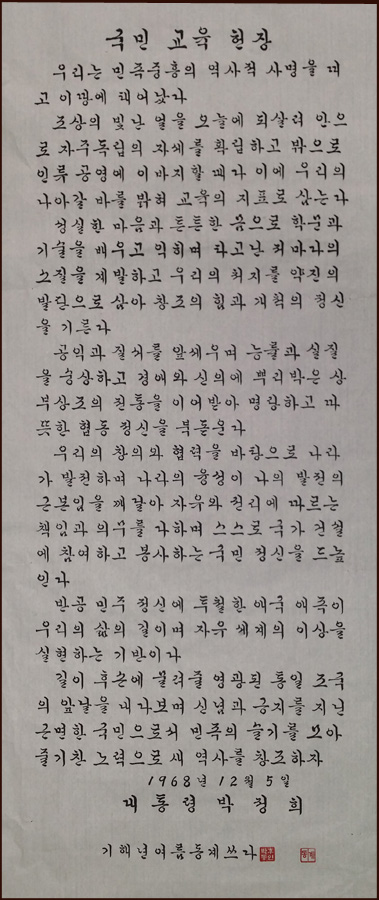 국민 교육 헌장
우리는 민족중흥의 역사적 사명을 띠
고 이땅에 태어났다
조상의 빛난 얼을 오늘에 되살려 안으
로 자주독립의 자세를 확립하고 밖으로
인류 공영에 이바지할 때다 이에 우리의
나아갈 바를 밝혀 교육의 지표로 삼는다
성실한 마음과 튼튼한 몸으로 학문과
기술을 배우고 익히며 타고난 저마다의
소질을 계발하고 우리의 처지를 약진의
발판으로 삼아 창조의 힘과 개척의 정신
을 기른다
공익과 질서를 앞세우며 능률과 실질
을 숭상하고 경애와 신의에 뿌리박은 상
부상조의 전통을 이어받아 명랑하고 따
뜻한 협동 정신을 북돋운다
우리의 창의와 협력을 바탕으로 나라
가 발전하며 나라의 융성이 나의 발전의
근본임을 깨달아 자유와 권리에 따르는
책임과 의무를 다하며 스스로 국가 건설
에 참여하고 봉사하는 국민 정신을 드높
인다
반공 민주 정신에 투철한 애국 애족이
우리의 삶의 길이며 자유 세계의 이상을
실현하는 기반이다
길이 후손에 물려줄 영광된 통일 조국
의 앞날을 내다보며 신념과 긍지를 지닌
근면한 국민으로서 민족의 슬기를 모아
줄기찬 노력으로 새 역사를 창조하자
1968년 12월 5일
대통령 박정희
기해년여름동계쓰다